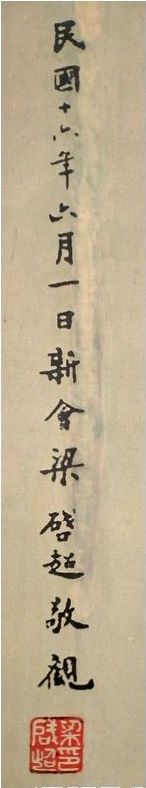 民國十六年六月一日新會梁啓超敬觀
梁啓超印